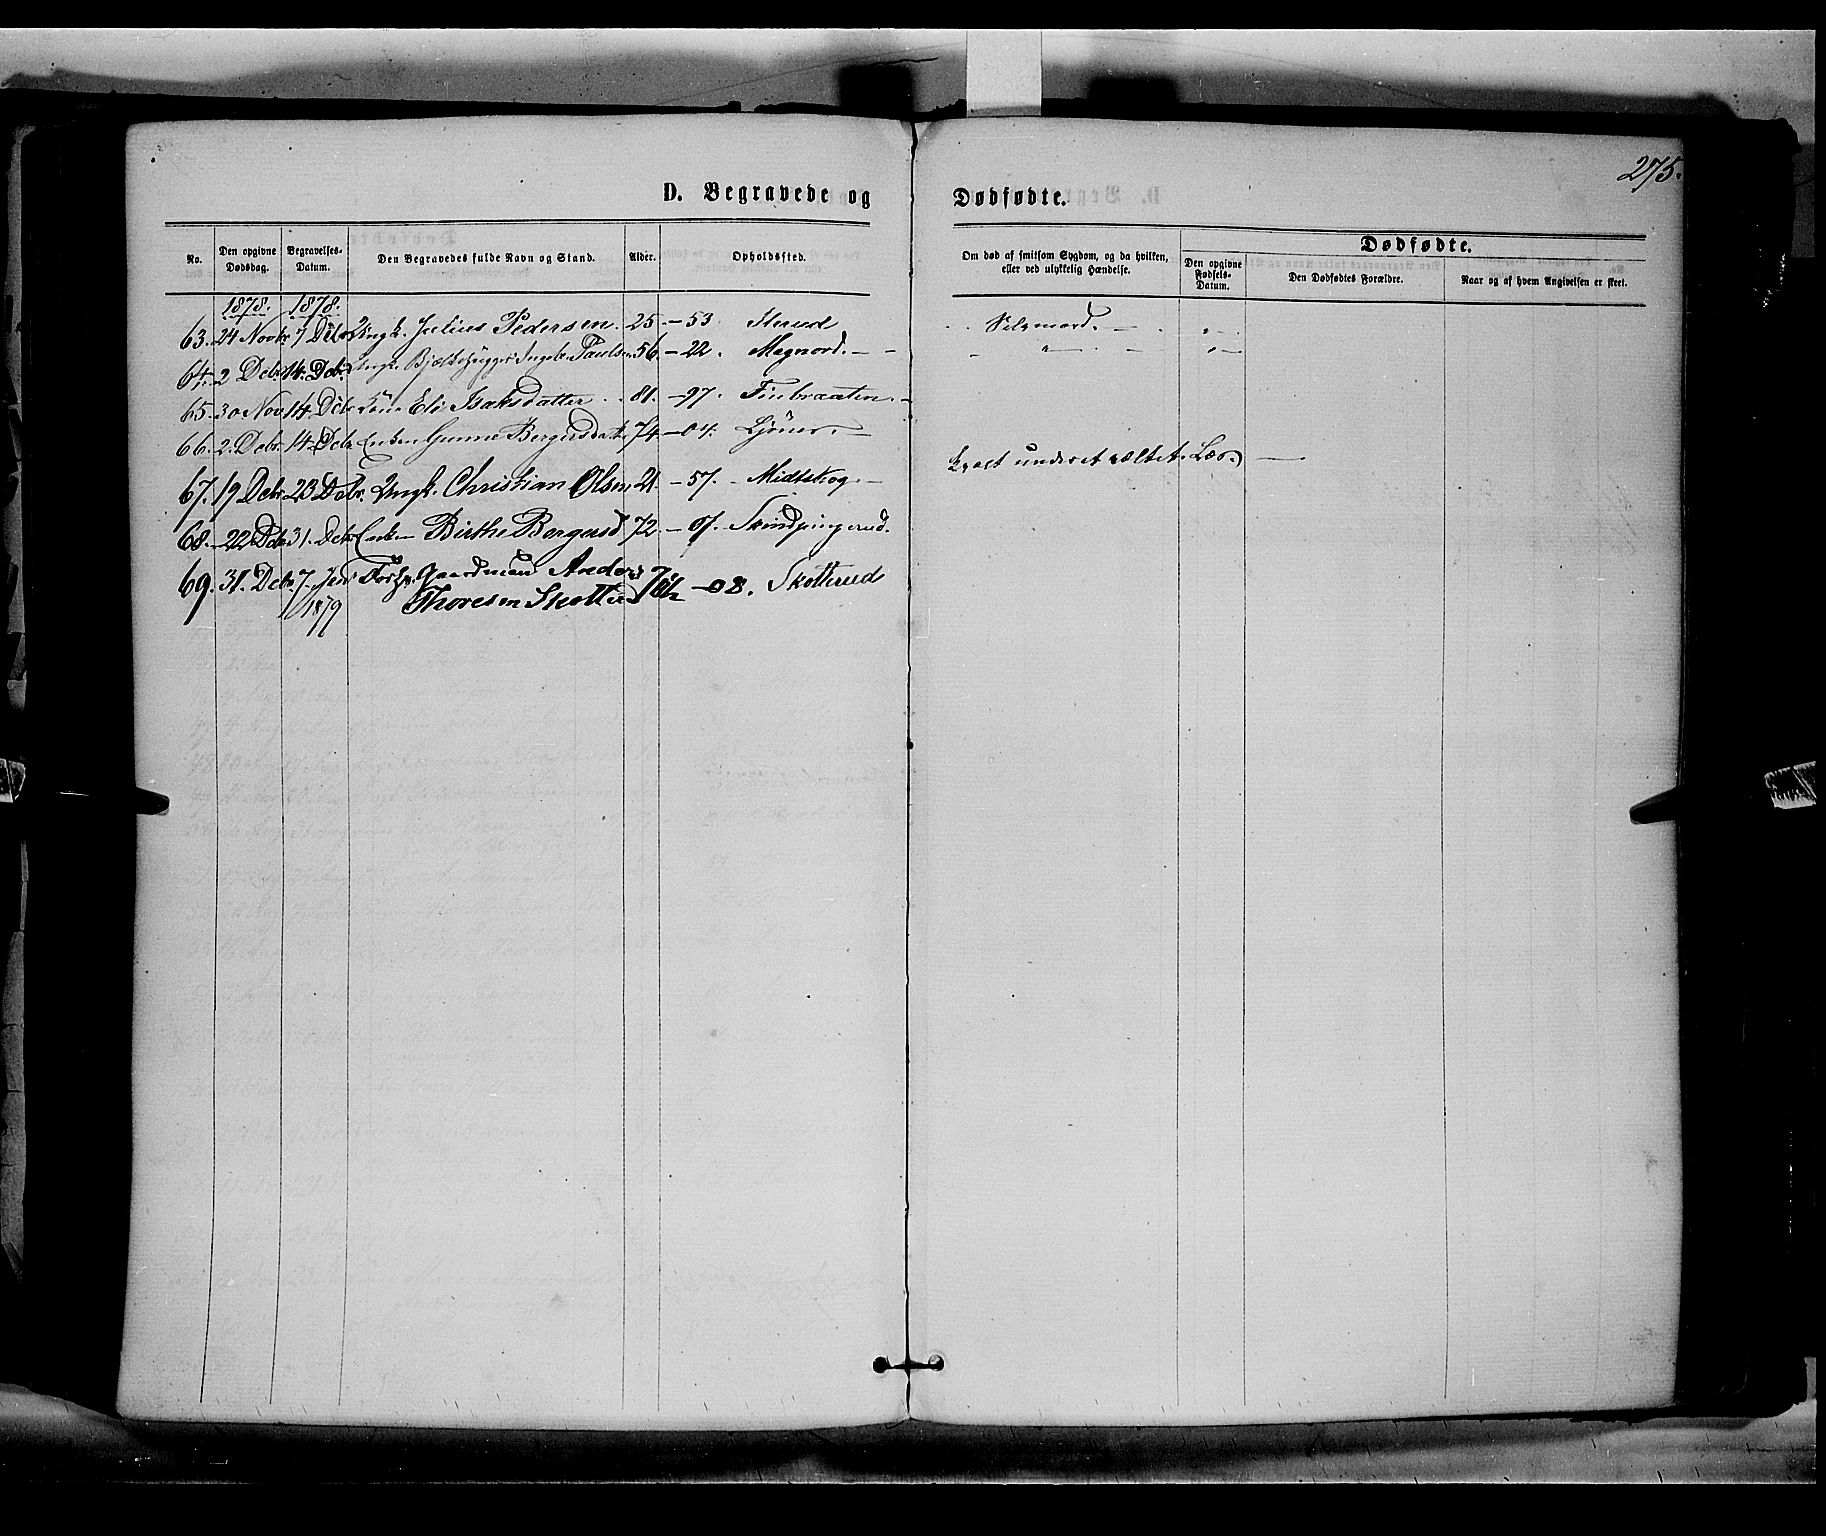 275.
D. Begravede og Dødfødte.
No. Den opgivne Dødsdag. Begravelses-Datum. Den Begravedes fulde Navn og Stand. Alder. Opholdssted. Om død af smitsom Sygdom, og da hvilken, eller ved ulykkelig Hændelse. Dødfødte. Den opgivne Fødsels-Datum. Den Dødfødtes Forældre. Naar og af hvem Angivelsen er skeet.
1878. 1878.
63. 24 Novbr 7 Dcbr Ungk. Julius Pedersen. 25 - 53. Selvmord. - " -
64. 2 Debr. 14. Debr. Ungk. Paulsen 56. - 22. Magnord. - - - " - - " -
65. 30 Nov 14 Dcbr Kone Eli Isaksdatter 81. - 97. Finbraaten. -
66. 2. Debr. 14 Debr Enken Gunne Bergersdatr 74 - 04.
67. 19 Debr. 23 Debr. Ungk. Christian Olsen 21 - 57. - Midtskog. - qvalt under et væltet Læs. -
68. 22 Debr 31. Debr Enken Birthe Bergersd 72. - 07.
69. 31. Debr. 7. Jan 1879 Gaardmand Anders Thoresen Skotterud 70½ - 08. Skotterud